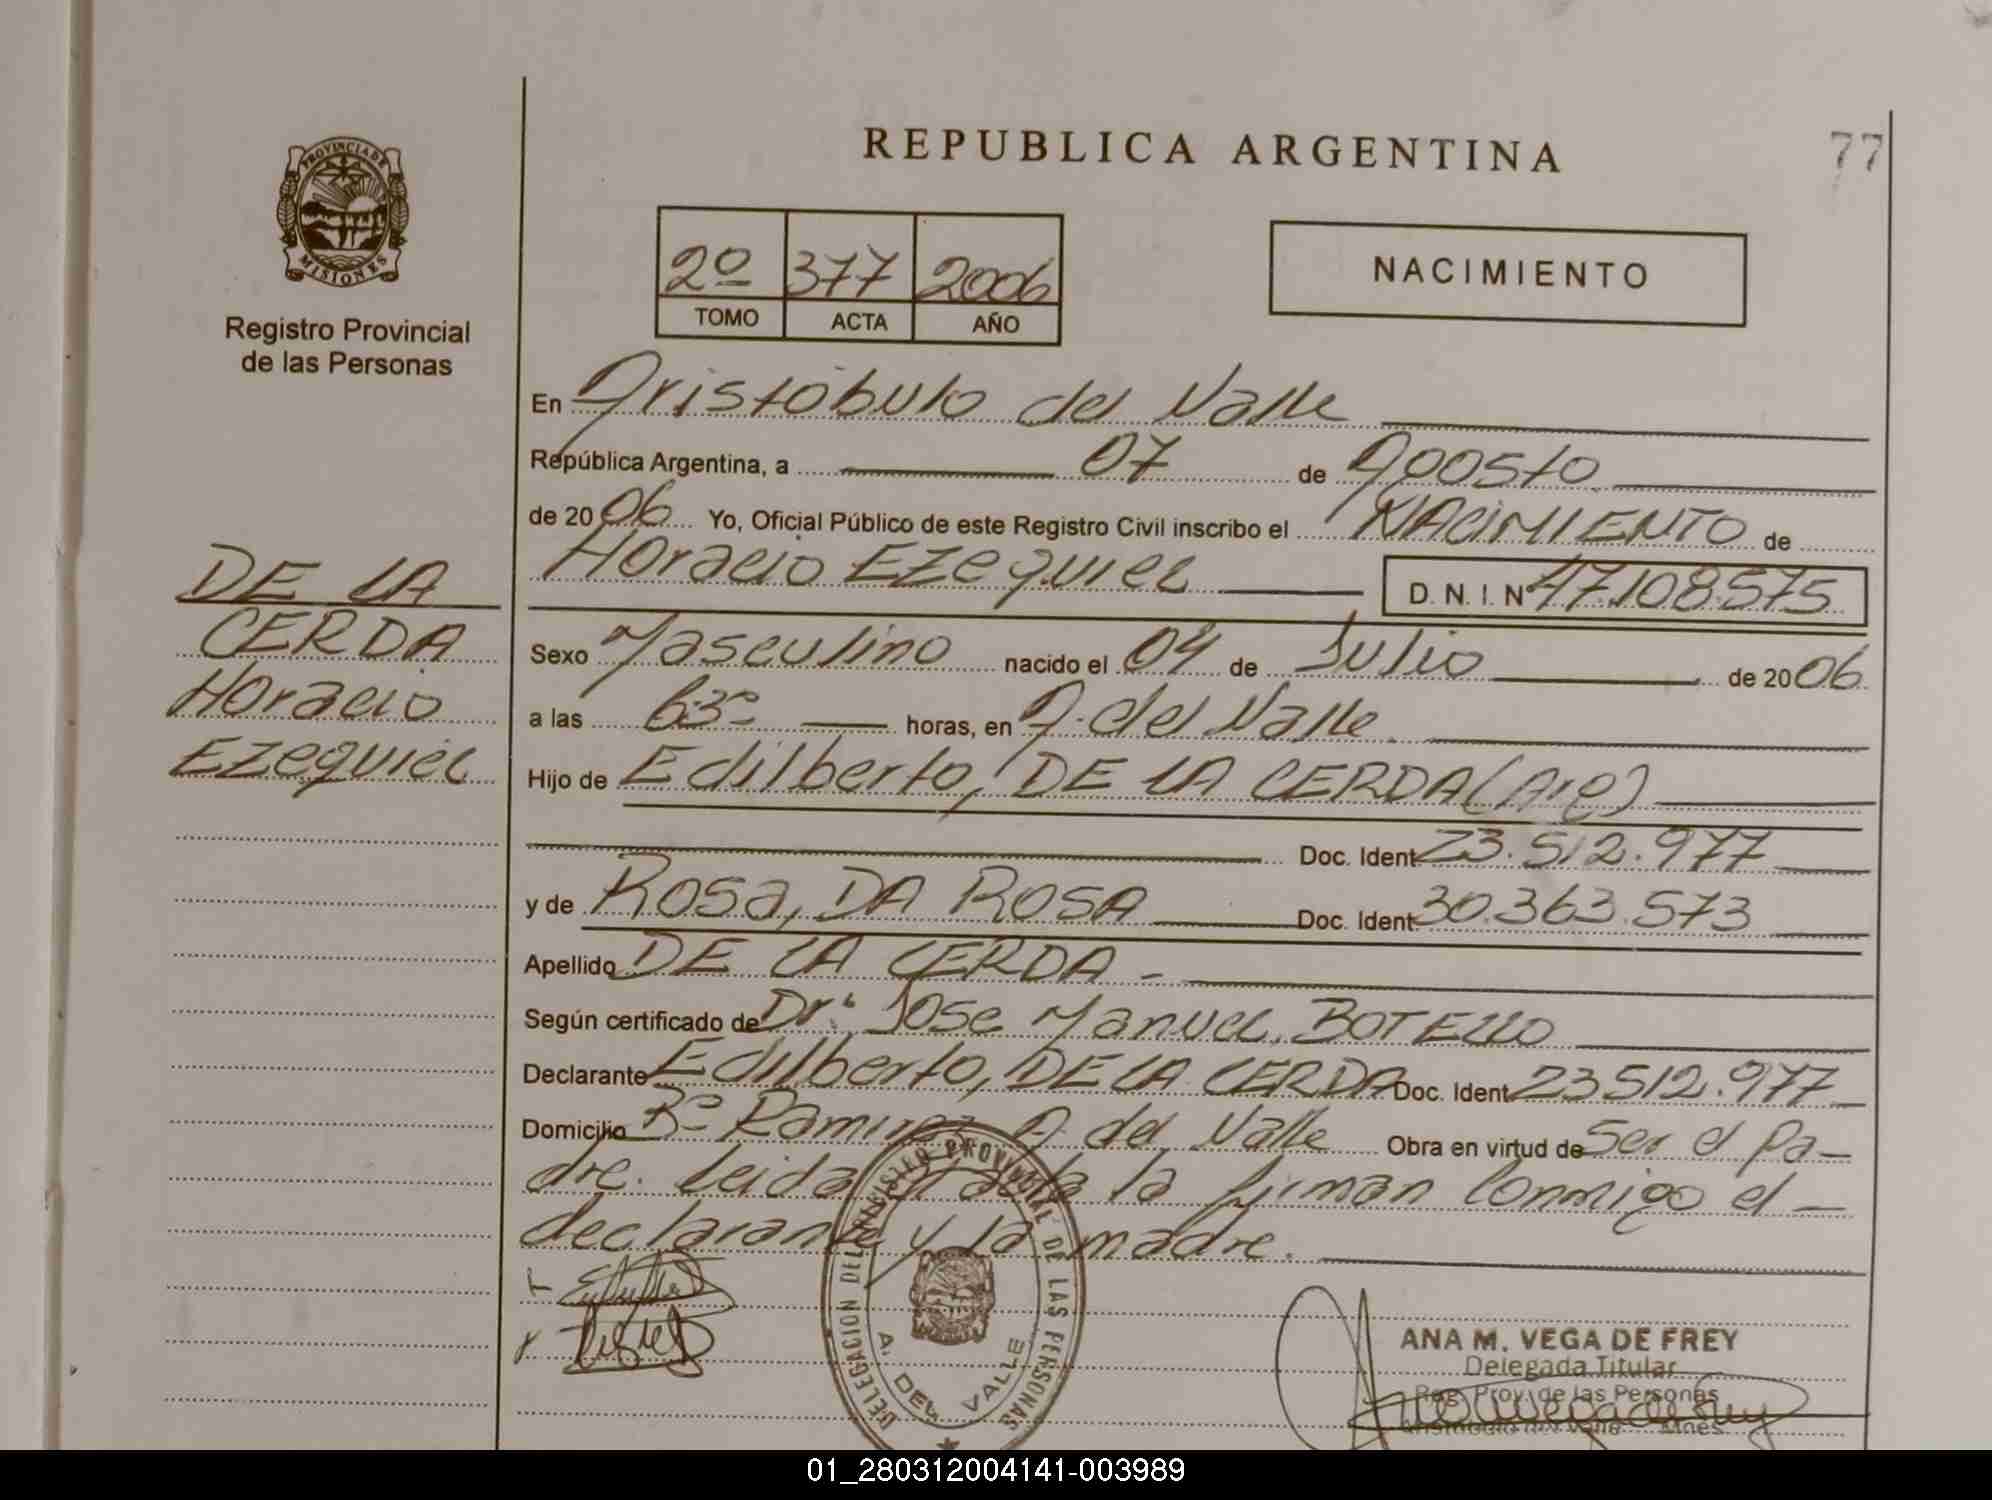 REPUBLICA ARGENTINA
77
PROVINCIA DE
MISIONES
Registro Provincial
de las Personas
2º 377 2006
TOMO ACTA AÑO
NACIMIENTO
En Aristóbulo del Valle
República Argentina, a 07 de Agosto
de 2006 Yo, Oficial Público de este Registro Civil inscribo el NACIMIENTO de
Horacio EZequiel D. N. I. Nº 47.108.575
DE LA
CERDA
Horacio
EZequiel
Sexo Masculino nacido el 04 de Julio de 2006
a las 6:3º horas, en A. del Valle
Hijo de Edilberto, DE LA CERDA (Arg)
Doc. Ident 23.512.977
y de Rosa, DA ROSA Doc. Ident 30.363.573
Apellido DE LA CERDA -
Según certificado de Dr. Jose Manuel, BOTELLO
Declarante Edilberto, DE LA CERDA Doc. Ident 23512.977
Domicilio Bº Ramirez A. del Valle Obra en virtud de Ser el pa-
dre. leida la firman Conmigo el -
declarante y la madre.
DELEGACION DEL REGISTRO PROVINCIAL DE LAS PERSONAS
A. DEL VALLE
ANA M. VEGA DE FREY
Delegada Titular
Reg. Prov. de las Personas
Aristóbulo del Valle - Mnes
01_280312004141-003989